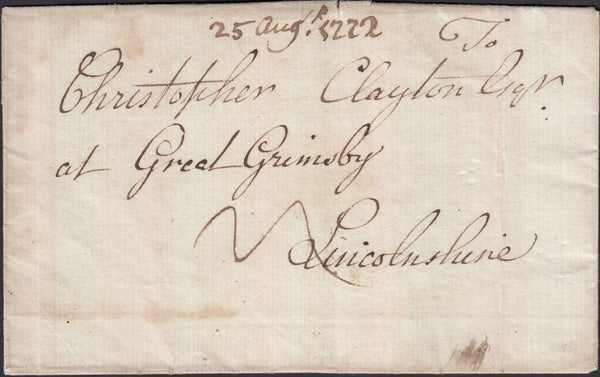 25 Augt. 1772
To
Christopher Clayton Esqr.
at Great Grimsby
Lincolnshire